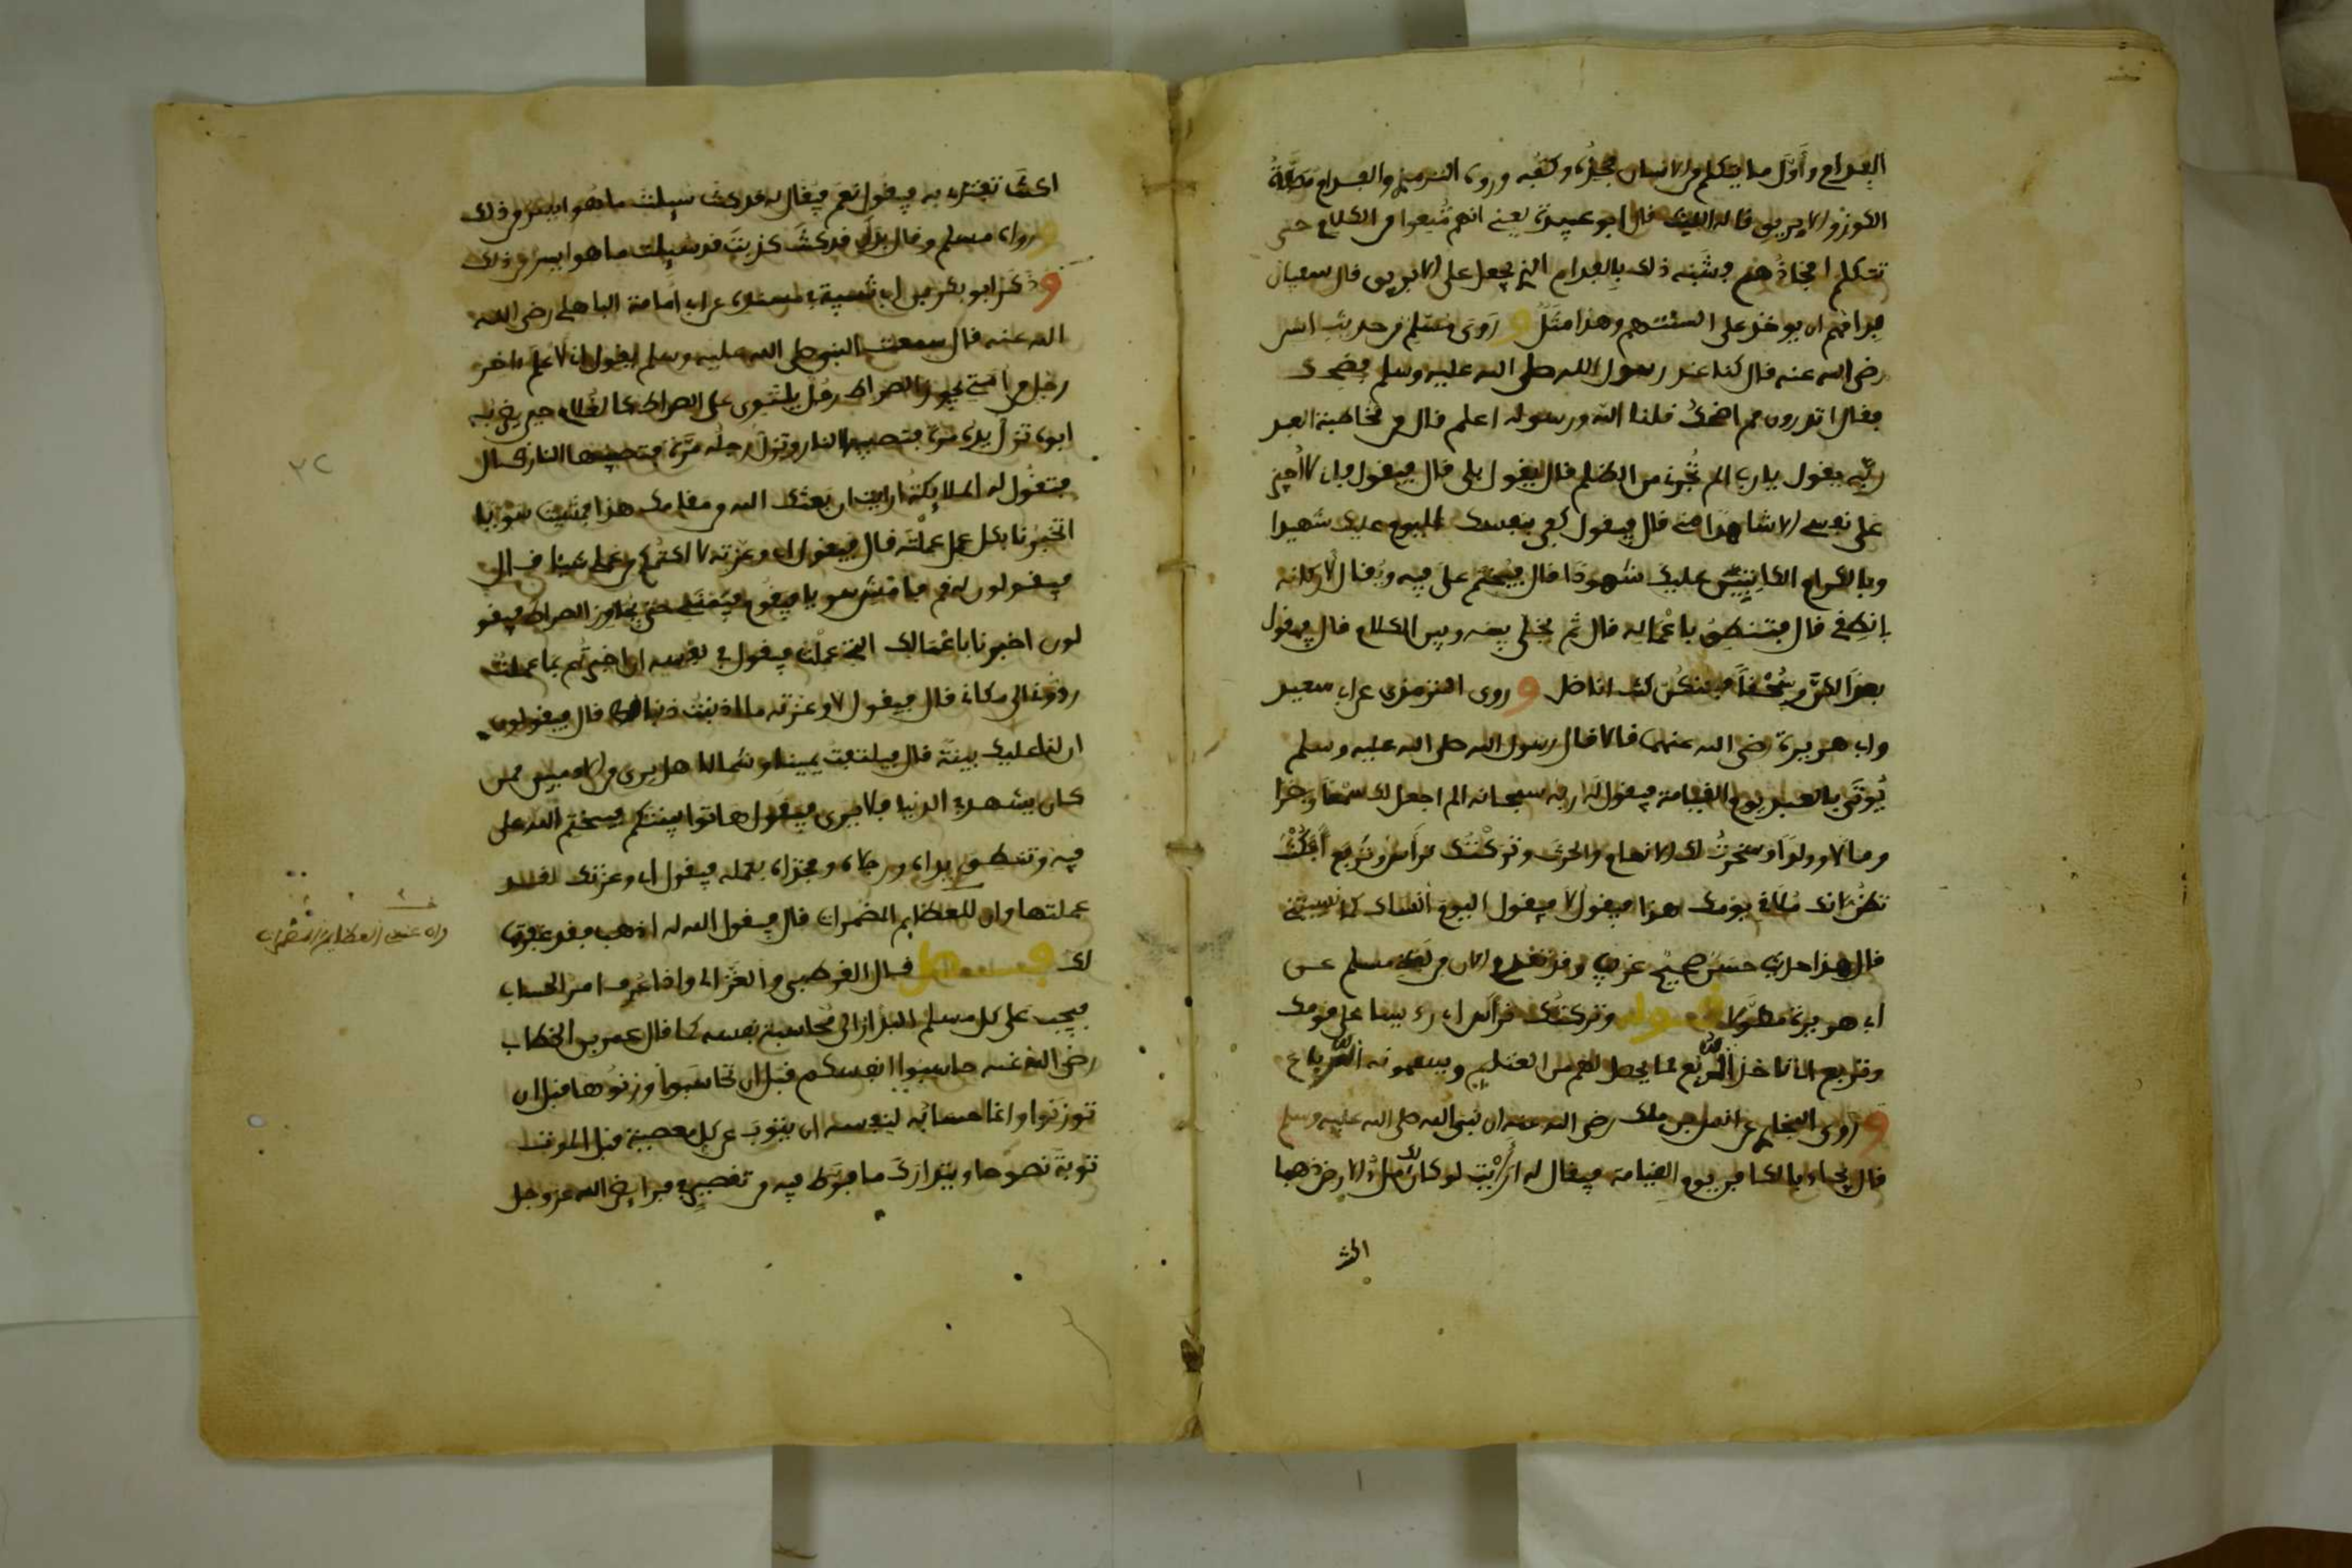 الفدام وأول ما يتكلم من الانسان فخذه وكفه وروى الترمذي والفدام مصفاة
الكوز والابريق قاله الليث قال ابو عبيدة يعني انهم منعوا من الكلام حتى
تتكلم افخاذهم فشبه ذلك بالفدام الذي يجعل على الابريق قال سفيان
فدامهم ان يوخذ على السنتهم وهذا مثل وروى مسلم من حديث انس
رضي الله عنه قال كنا عند رسول الله صلى الله عليه وسلم فضحك
فقال اتدرون مم اضحك قلنا الله ورسوله اعلم قال من مخاطبة العبد
ربه يقول يا رب الم تجرني من الظلم قال يقول بلى قال فيقول فاني لا أجيز
على نفسي الا شاهدا مني قال فيقول كفى بنفسك اليوم عليك شهيدا
وبالكرام الكاتبين عليك شهودا قال فيختم على فيه ويقال لاركانه
انطقي قال فتنطق باعماله قال ثم يخلى بينه وبين الكلام قال فيقول
بعدا لكن وسحقا فعنكن كنت اناضل وروى الترمذي عن ابي سعيد
وابي هريرة رضي الله عنهما قالا قال رسول الله صلى الله عليه وسلم
يُوتَى بالعبد يوم القيامة فيقول له ربه سبحانه الم اجعل لك سمعا وبصرا
ومالا وولدا وسخرتُ لك الانعام والحرث وتركتك ترأس وتربع أفكنت
تظن انك ملاقي يومك هذا فيقول لا فيقول اليوم أنساك كما نسيتني
قال هذا حديث حسن صحيح غريب وقد تقدم الان من لفظ مسلم عن
ابي هريرة مطولا قوله وتركتك ترأس اي رئيسا على قومك
وتربع اي تاخذ المرباع مما يحصل لقومك من الغنايم ويسمونه المرباع
وروى البخاري عن انس بن ملك رضي الله عنه ان نبي الله صلى الله عليه وسلم
قال يجاء بالكافر يوم القيامة فيقال له ارأيت لو كان لك مل ء الارض ذهبا
اكنت
اكنت تفتدي به فيقول نعم فيقال له قد كنت سيلت ما هو ايسر من ذلك
رواه مسلم وقال بدل قد كنت كذبت قد سيلت ما هو ايسر من ذلك
وذكر ابو بكر بن ابي شيبة في مسنده عن ابي امامة الباهلي رضي الله
الله عنه قال سمعت النبي صلى الله عليه وسلم يقول اني لاعلم ءاخر
رجل من امتي يجوز الصراط رجل يلتوي على الصراط كالغلام حين يضربه
ابوه تزل يده مرة فتصيبها النار وتزل رجله مرة فتصيبها النار قال
فتقول له الملائكة ارايت ان بعثك الله من مقامك هذا فمشيت سويا
اتخبرنا بكل عمل عملته قال فيقول اي وعزته لا اكتمكم من عملي شيئا قال
فيقولون له قم فامش سويا فيقوم فيمشي حتى يجاوز الصراط فيقو
لون اخبرنا باعمالك التي عملت فيقول في نفسه ان اخبرتهم بما عملت
ردوني الى مكاني قال فيقول لا وعزته ما اذنبت ذنبا قط قال فيقولون
ان لنا عليك بينة قال فيلتفت يمينا وشمالا هل يرى من الادميين ممن
كان يشهد في الدنيا فلا يرى فيقول هاتوا بينتكم فيختم الله على
فيه وتنطق يداه ورجلاه وفخذاه بعمله فيقول اي وعزتك لقد
عملتها وان للعظايم المضمرات قال فيقول الله له اذهب فقد غفرتها
لك فصل قال القرطبي والغزالي واذا عرفت امر الحساب
فيجب على كل مسلم البدار الى محاسبة نفسه كما قال عمر بن الخطاب
رضي الله عنه حاسبوا انفسكم قبل ان تحاسبوا وزنوها قبل ان
توزنوا وانما حسابه لنفسه ان يتوب عن كل معصية قبل الموت
توبة نصوحا ويتدارك ما فرط فيه من تقصير في فرايض الله عز وجل
وان عندي العظايم المضمرات
٣٢